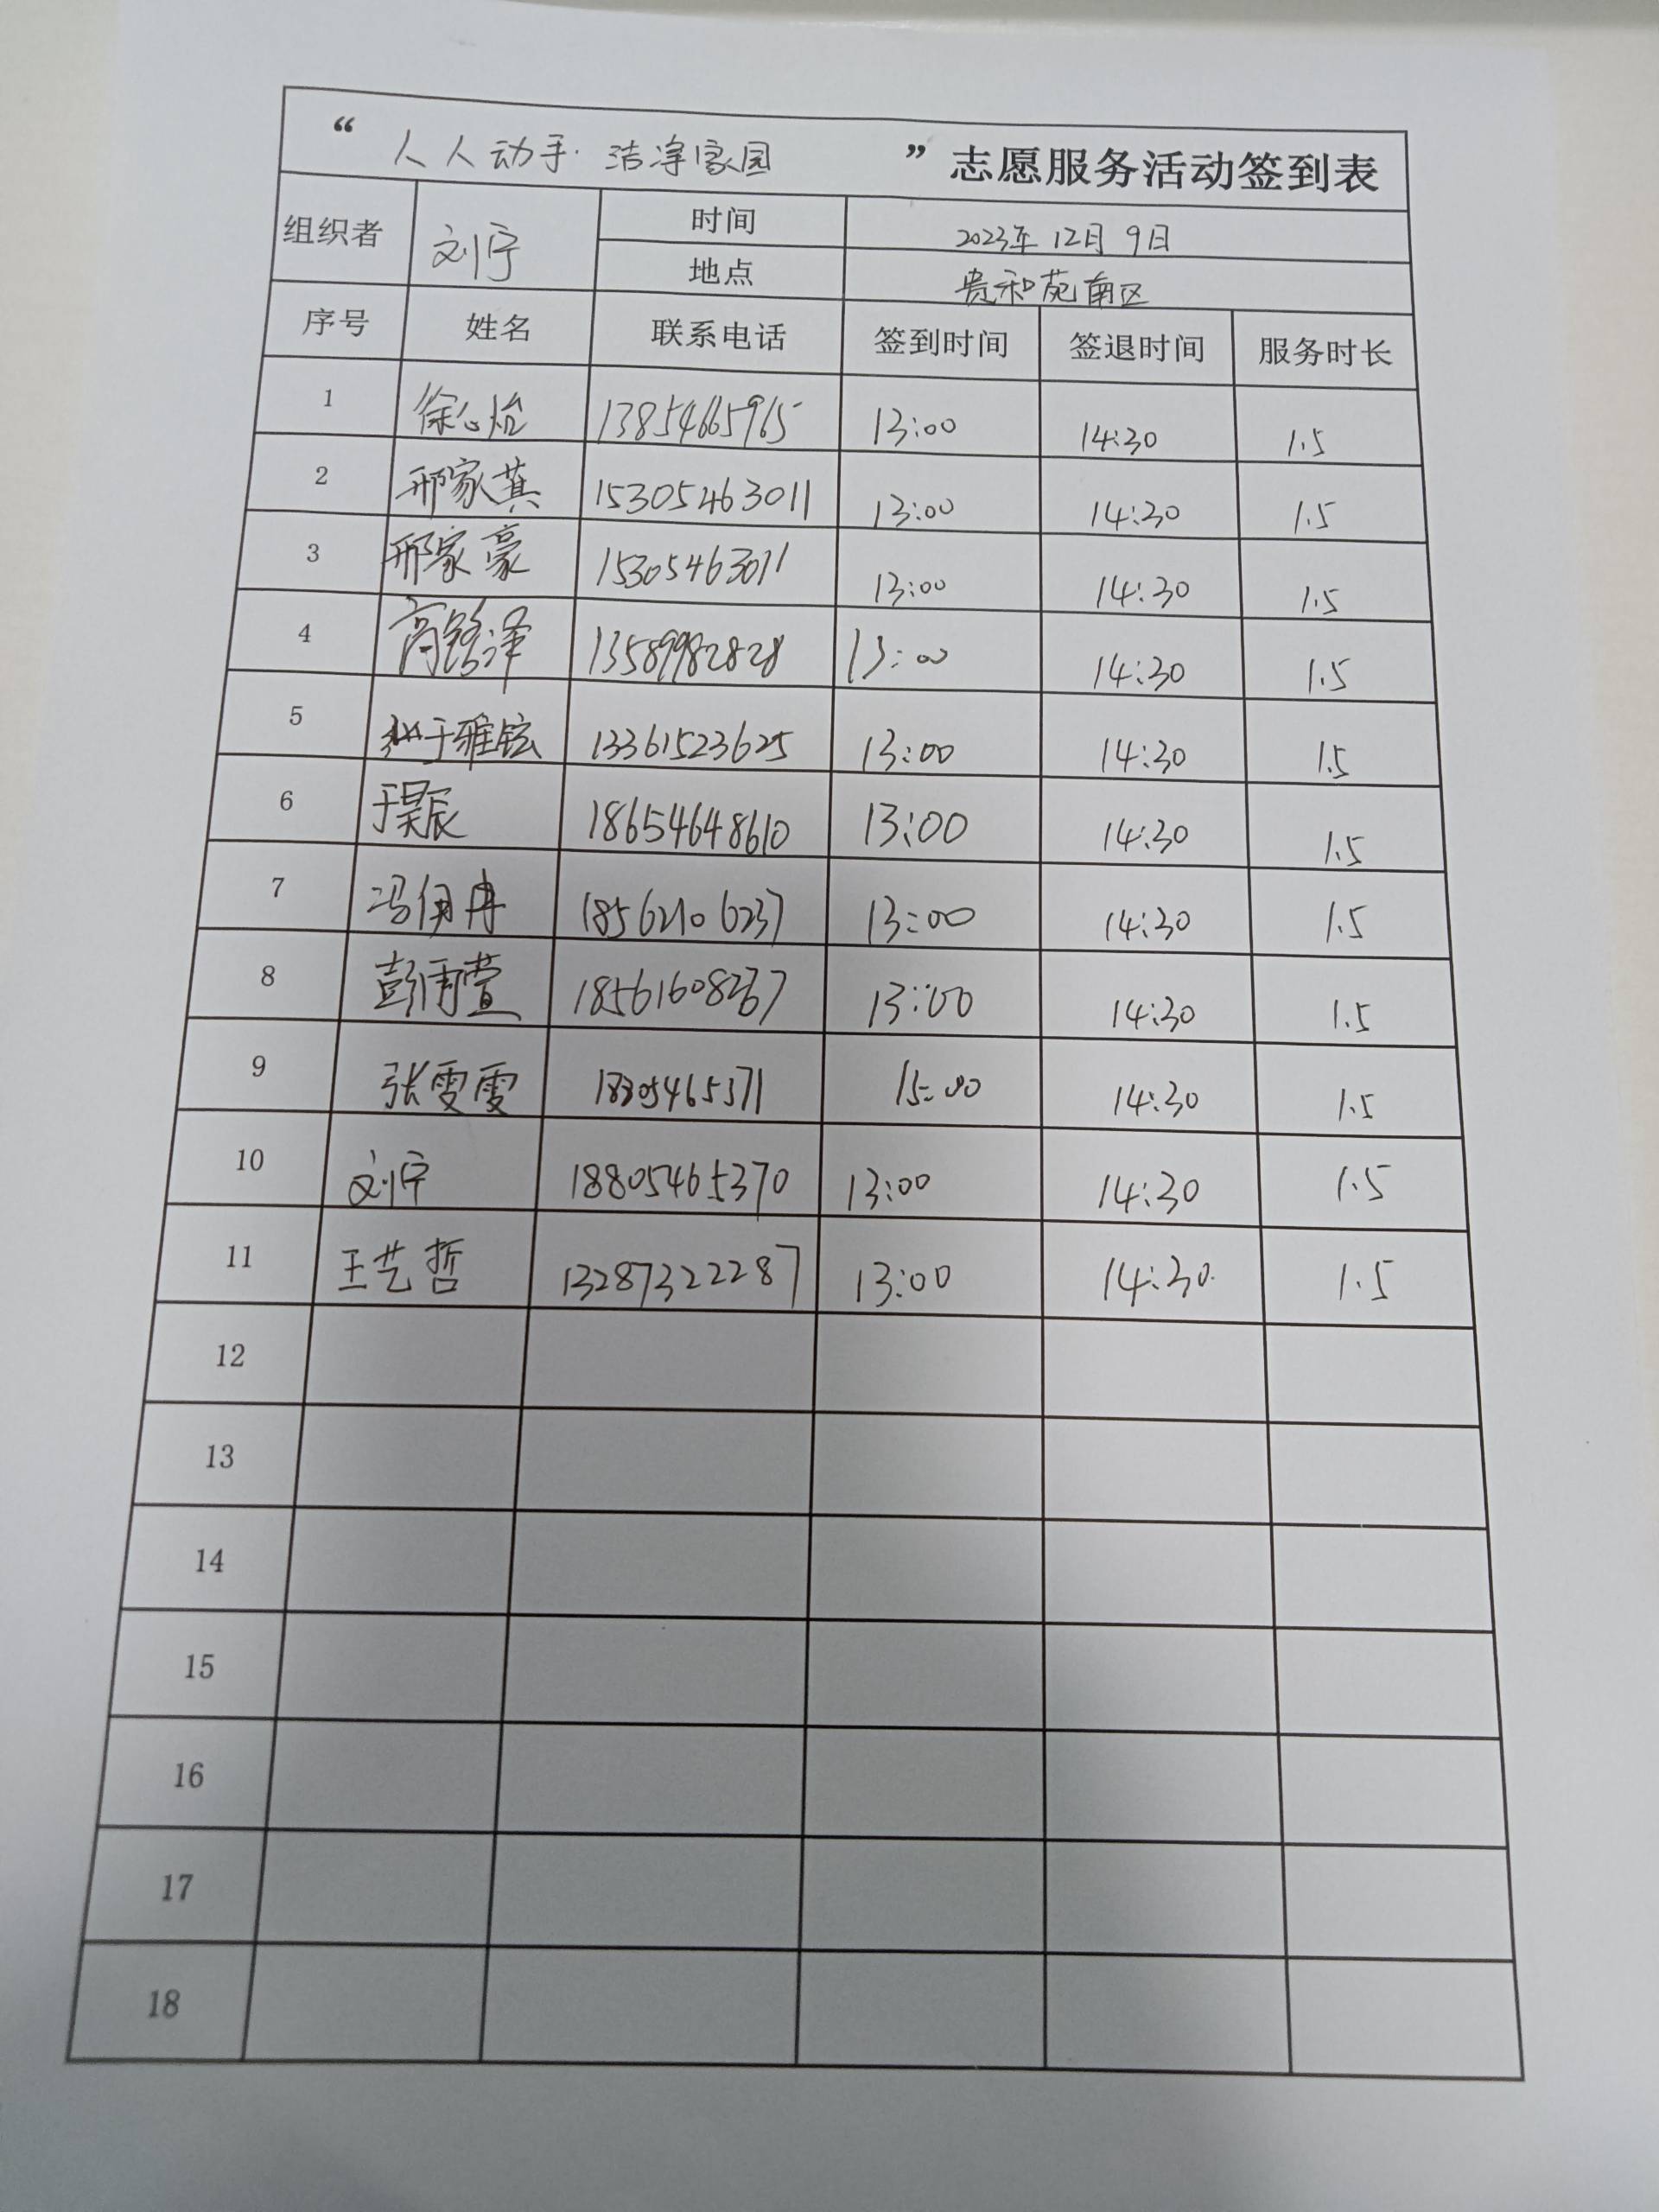 “ 人人动手·洁净家园 ”志愿服务活动签到表
组织者 刘宁 时间 2023年12月9日
地点 贵和苑南区
序号 姓名 联系电话 签到时间 签退时间 服务时长
1 徐心怡 13854665965 13:00 14:30 1.5
2 邢家萁 15305463011 13:00 14:30 1.5
3 邢家豪 15305463011 13:00 14:30 1.5
4 高铭泽 13589982828 13:00 14:30 1.5
5 于雅铉 13361523625 13:00 14:30 1.5
6 于昊辰 18654648610 13:00 14:30 1.5
7 冯伊冉 18562106237 13:00 14:30 1.5
8 彭倩萱 13:00 14:30 1.5
9 张雯雯 14:30 1.5
10 刘宁 18805465370 13:00 14:30 1.5
11 王艺哲 13287322287 13:00 14:30 1.5
12
13
14
15
16
17
18